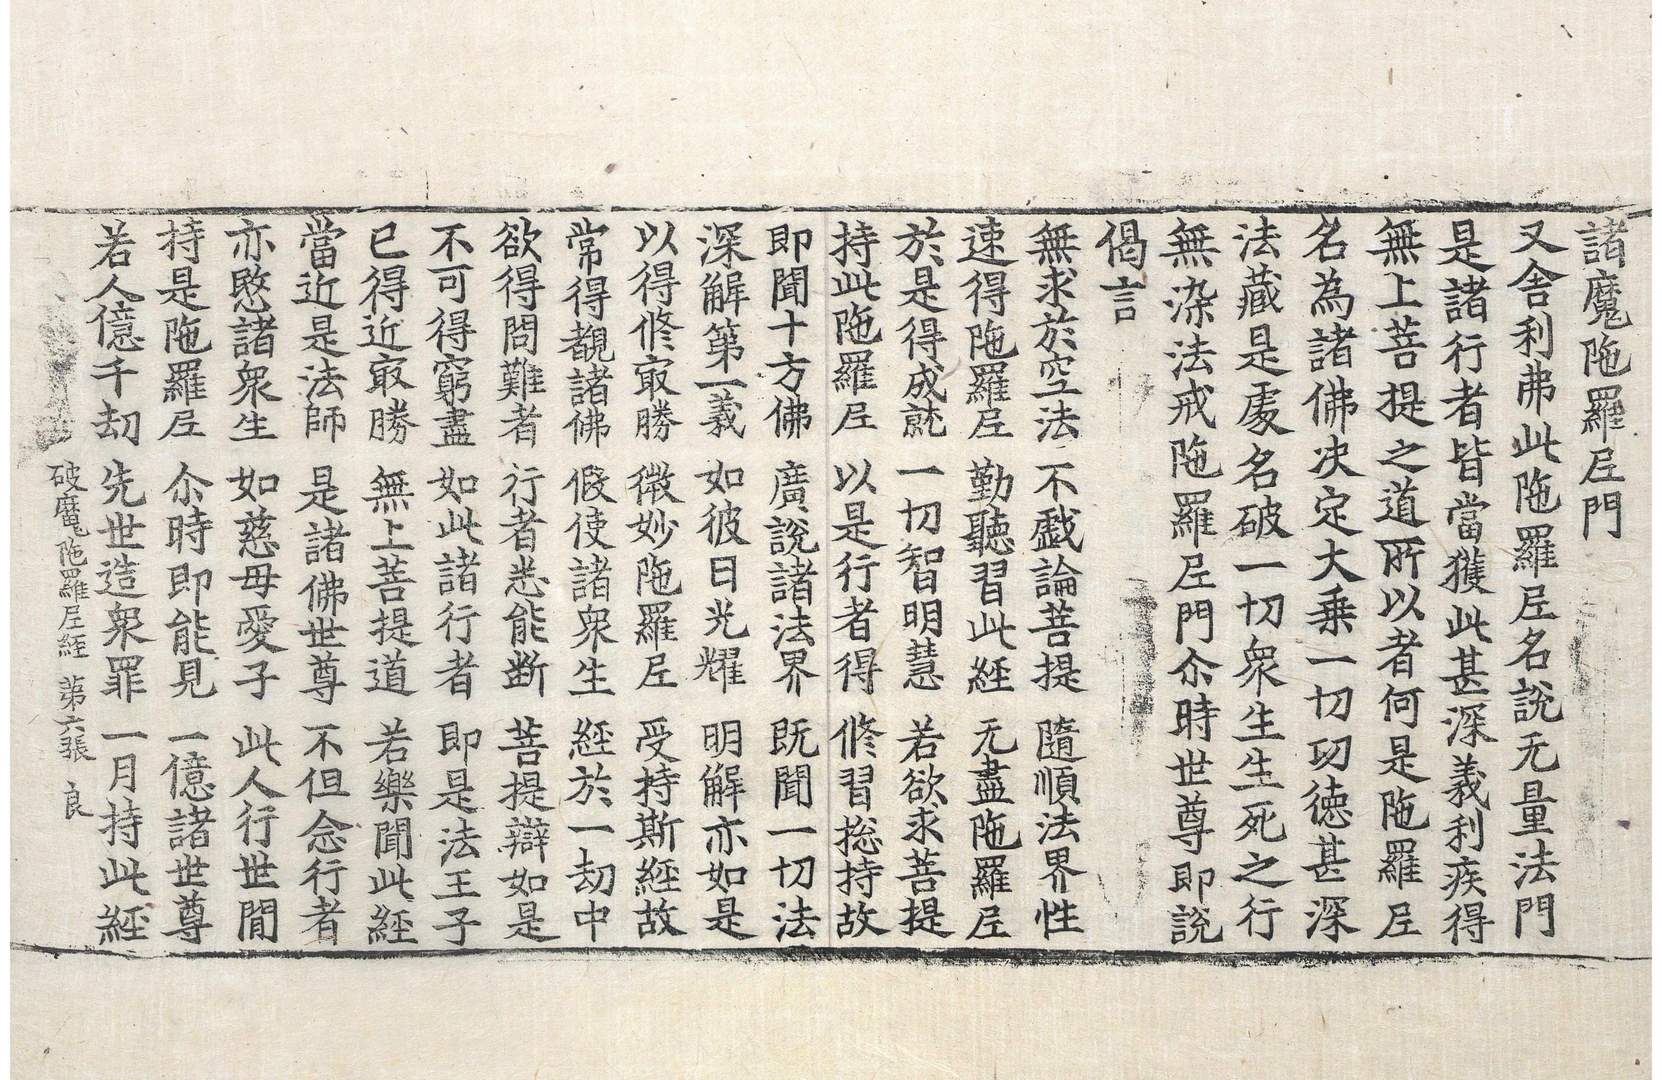 諸魔陁羅𡰱門
又舍利弗此陁羅𡰱名說无量法門
是諸行者皆當獲此甚深義利疾得
無上菩提之道所以者何是陁羅𡰱
名為諸佛决定大乗一切功徳甚深
法藏是䖏名破一切衆生生死之行
無染法戒陁羅𡰱門尒時世尊即說
偈言
無求於空法　不戯論菩提　隨順法界性
速得陁羅𡰱　勤聽習此經　无盡陁羅𡰱
於是得成就　一切智明慧　若欲求菩提
持此陁羅𡰱　以是行者得　修習捴持故
即聞十方佛　廣說諸法界　既聞一切法
深解第一義　如彼日光耀　明解亦如是
以得修㝡勝　微妙陁羅𡰱　受持斯經故
常得覩諸佛　假使諸衆生　經於一劫中
欲得問難者　行者悉能断　菩提辯如是
不可得窮盡　如此諸行者　即是法王子
已得近㝡勝　無上菩提道　若樂聞此經
當近是法師　是諸佛世尊　不但念行者
亦愍諸衆生　如慈母愛子　此人行世間
持是陁羅𡰱　尒時即能見　一億諸世尊
若人億千劫　先世造衆罪　一月持此經
破魔陁羅𡰱經　第六張　良